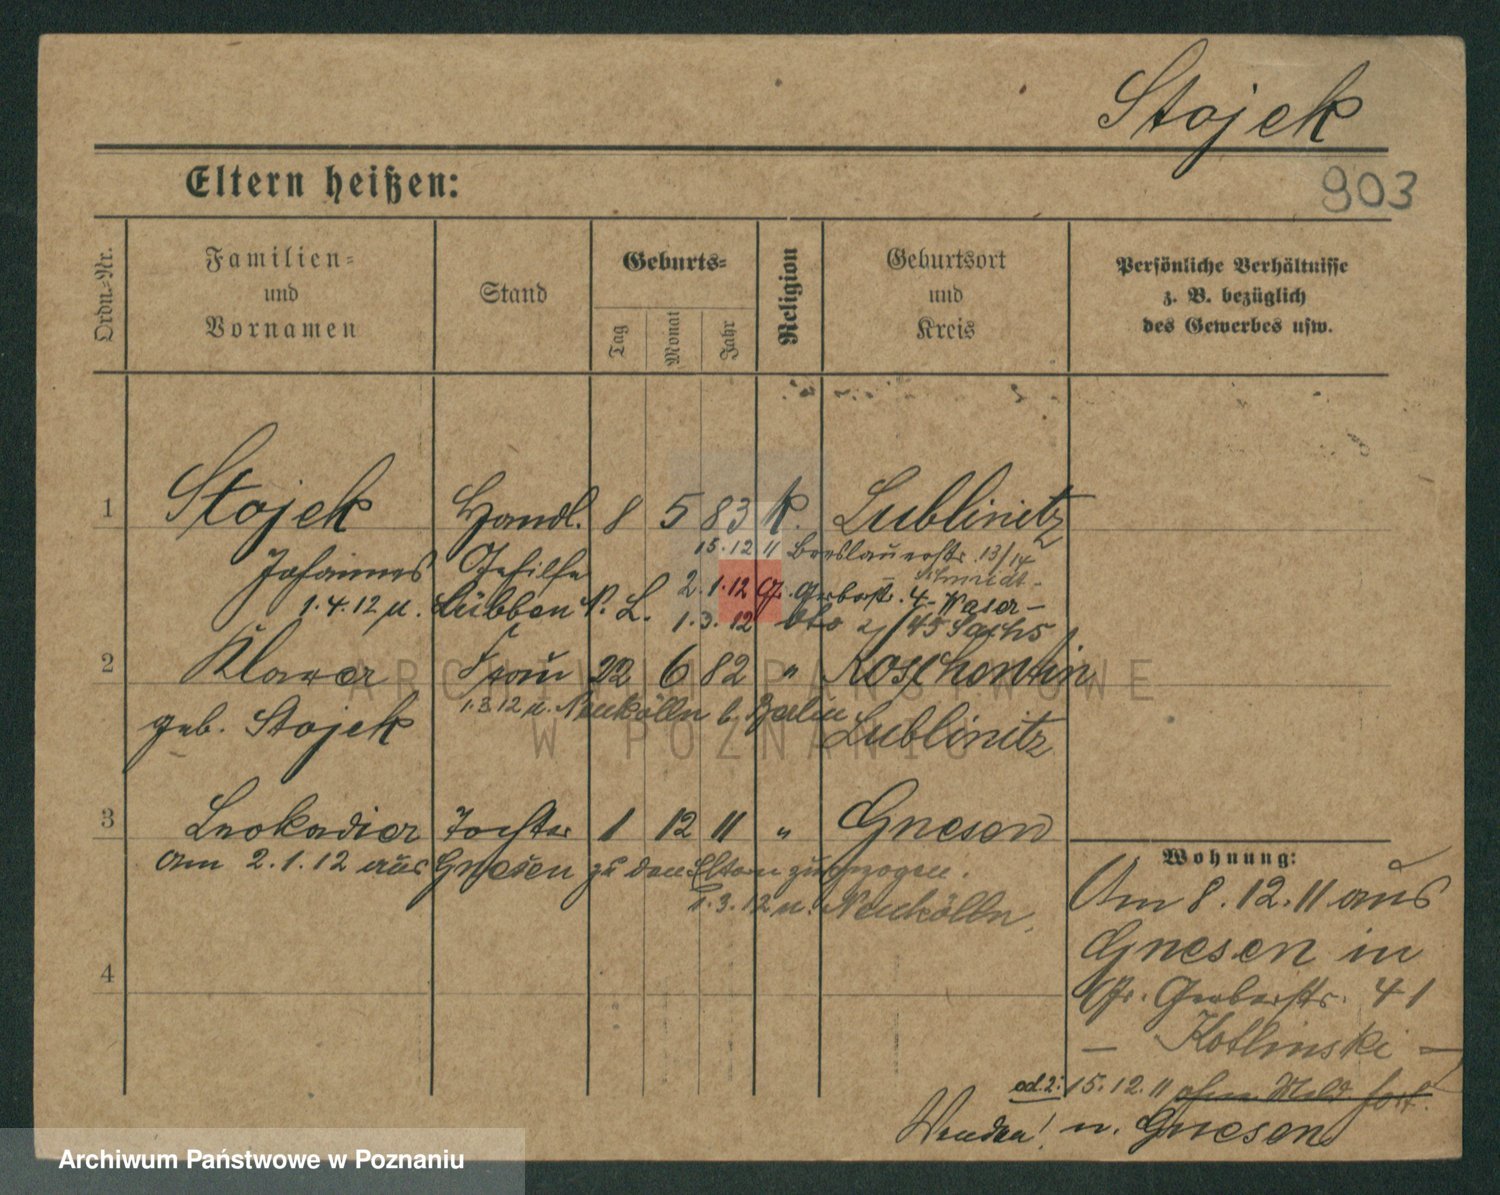 Stojek
Eltern heißen:
903
Ordn.-Nr.
Familien-
und
Vornamen
Stand
Geburts-
Tag
Monat
Jahr
Religion
Geburtsort
und
Kreis
Persönliche Verhältnisse
z. B. bezüglich
des Gewerbes usw.
1 Stojek Handl. 8 5 83 K. Lublinitz
Johannes Gehilfe 15.12 11 Breslauerstr. 13/14
Schmidt-
2.1.12 Gr. Gerberstr. 4 - Waser -
1.4.12 n. Lübben N. L. 1.3.12 45 Sachs
2 Klara Frau 22 6 82 " Koschentin
1.3.12 n. Neukölln b. Berlin
geb. Stojek Lublinitz
3 Leokadia Tochter 1 12 11 " Gnesen
am 2.1.12 aus Gnesen zu den Eltern zugezogen.
1.3.12 n. Neukölln.
4
Wohnung:
Am 8.12.11 aus
Gnesen in
Gr. Gerberstr. 41
- Kotlinski -
ad. 2: 15.12.11 ohne Meld. fort.
Wenden! n. Gnesen
ARCHIWUM PAŃSTWOWE
W POZNANIU
Archiwum Państwowe w Poznaniu